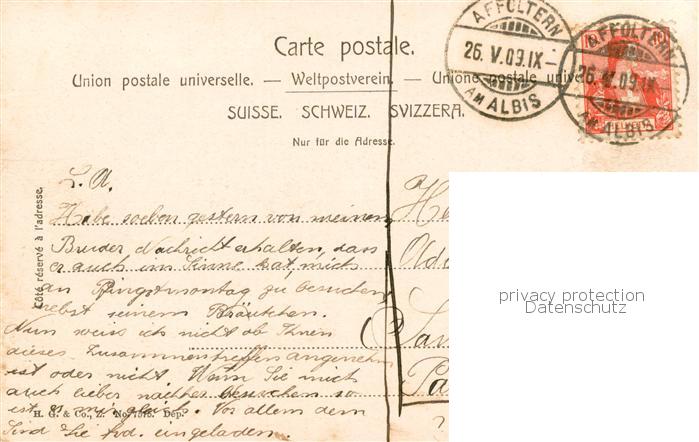 Carte postale.
Union postale universelle. — Weltpostverein. — Unione postale unive
SUISSE. SCHWEIZ. SVIZZERA.
Nur für die Adresse.
AFFOLTERN
26. V. 09. IX–
AM ALBIS
AFFOLTERN
26. V. 09. IX–
AM ALBIS
HELVETIA
Côté réservé à l'adresse.
L. A.
Habe soeben gestern von meinem
Bruder Nachricht erhalten, dass
er auch im Sinne hat, mich
an Pfingstmontag zu besuchen
nebst seinem Bräutchen.
Nun weiss ich nicht ob Ihnen
dieses Zusammentreffen angenehm
ist oder nicht. Wenn Sie mich
auch lieber nachher besuchen so
ist es mir gleich. Vor allem dem
Sind Sie frd. eingeladen.
H. G. & Co., Z. No. Dép.
He
Pa
privacy protection
Datenschutz